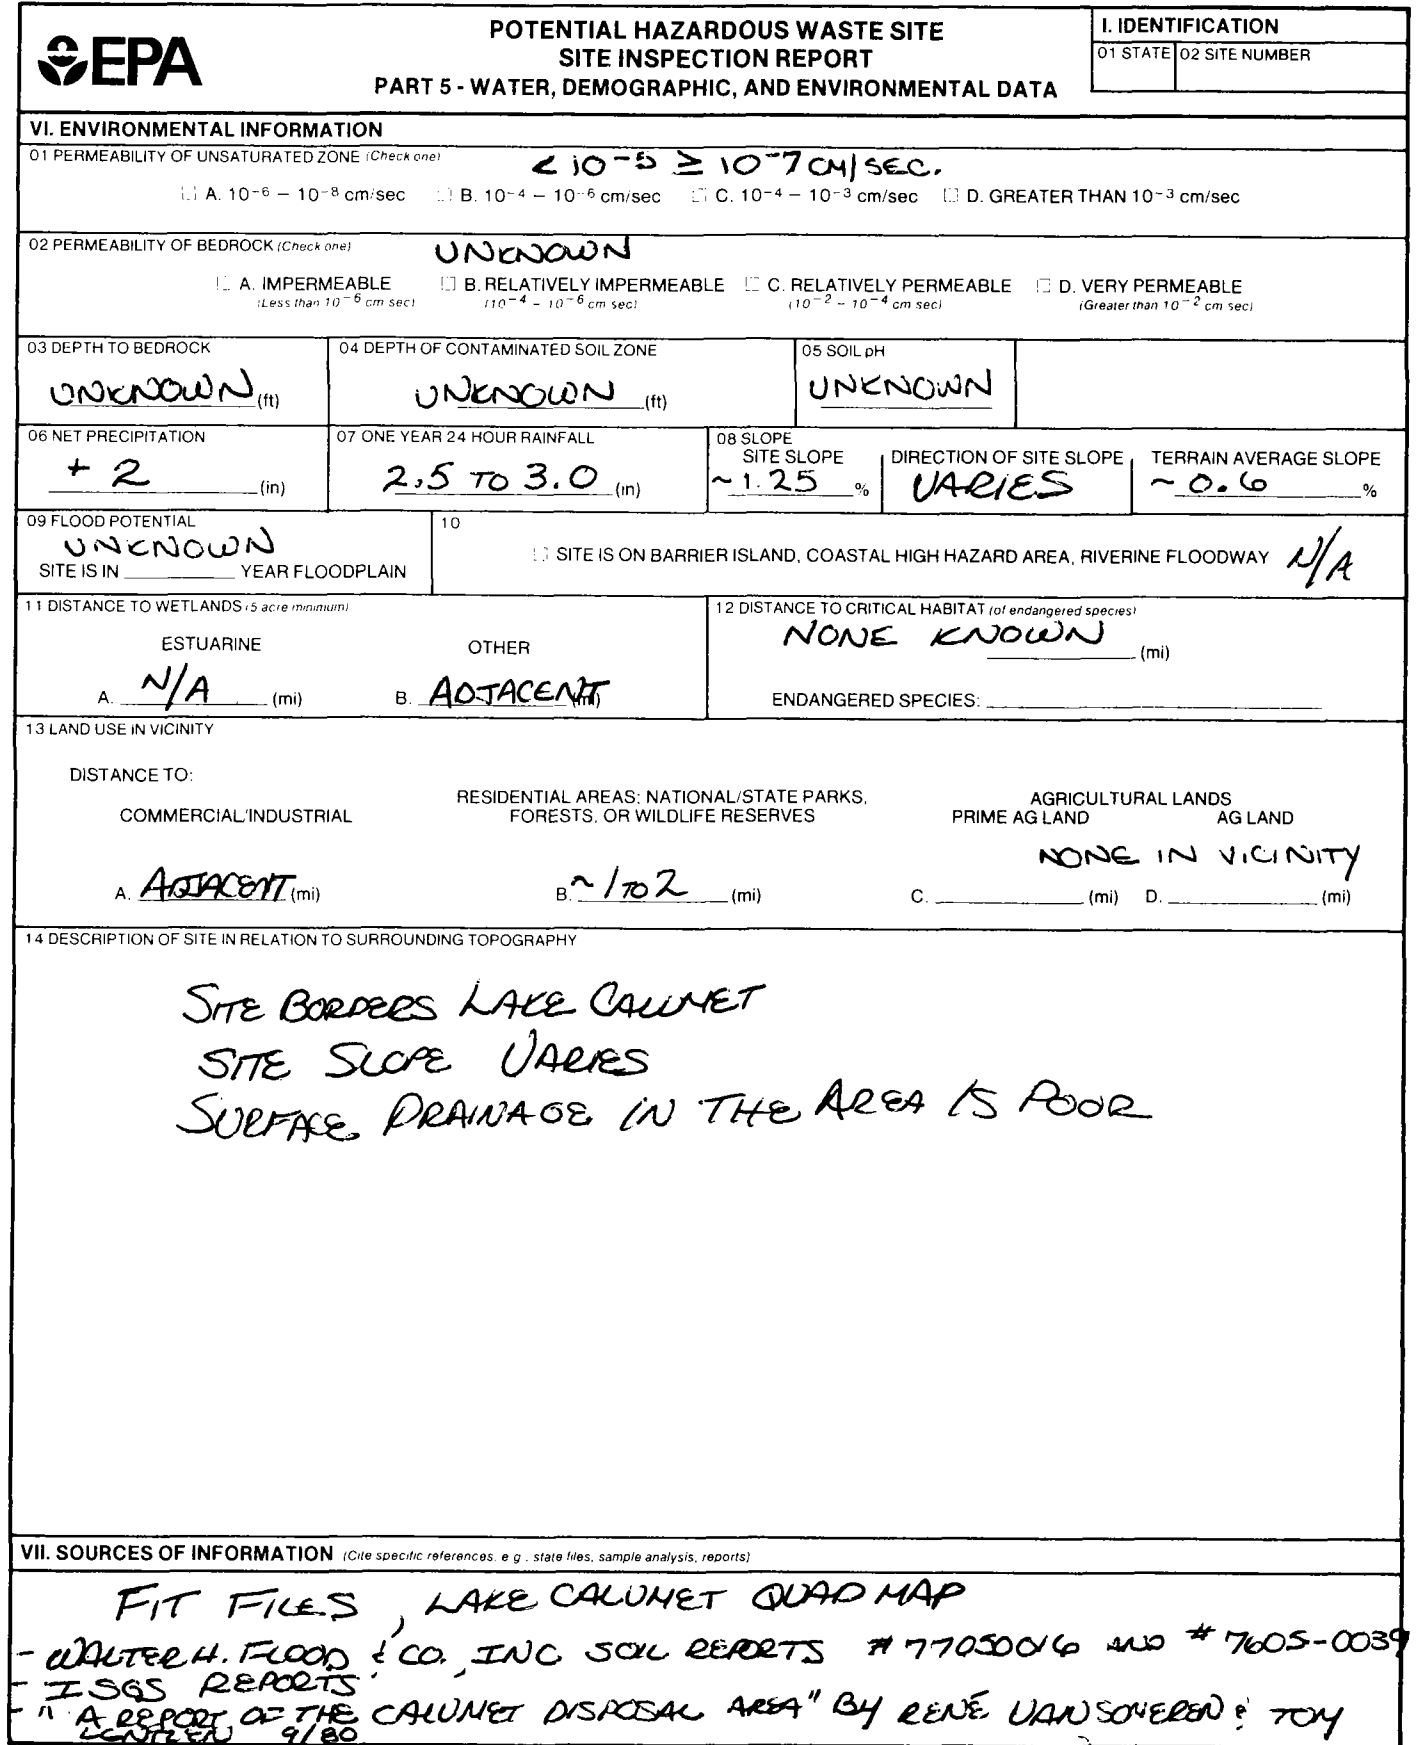 EPA
POTENTIAL HAZARDOUS WASTE SITE
SITE INSPECTION REPORT
PART 5 - WATER, DEMOGRAPHIC, AND ENVIRONMENTAL DATA
I. IDENTIFICATION
01 STATE 02 SITE NUMBER
VI. ENVIRONMENTAL INFORMATION
01 PERMEABILITY OF UNSATURATED ZONE (Check one)
< 10⁻⁵ ≥ 10⁻⁷ CM/SEC.
☐ A. 10⁻⁶ – 10⁻⁸ cm/sec ☐ B. 10⁻⁴ – 10⁻⁶ cm/sec ☐ C. 10⁻⁴ – 10⁻³ cm/sec ☐ D. GREATER THAN 10⁻³ cm/sec
02 PERMEABILITY OF BEDROCK (Check one) UNKNOWN
☐ A. IMPERMEABLE ☐ B. RELATIVELY IMPERMEABLE ☐ C. RELATIVELY PERMEABLE ☐ D. VERY PERMEABLE
(Less than 10⁻⁶ cm sec) (10⁻⁴ – 10⁻⁶ cm sec) (10⁻² – 10⁻⁴ cm sec) (Greater than 10⁻² cm sec)
03 DEPTH TO BEDROCK
UNKNOWN (ft)
04 DEPTH OF CONTAMINATED SOIL ZONE
UNKNOWN (ft)
05 SOIL pH
UNKNOWN
06 NET PRECIPITATION
+ 2 (in)
07 ONE YEAR 24 HOUR RAINFALL
2.5 TO 3.0 (in)
08 SLOPE
SITE SLOPE
~1.25 %
DIRECTION OF SITE SLOPE
VARIES
TERRAIN AVERAGE SLOPE
~ 0.6 %
09 FLOOD POTENTIAL
UNKNOWN
SITE IS IN ______ YEAR FLOODPLAIN
10
☐ SITE IS ON BARRIER ISLAND, COASTAL HIGH HAZARD AREA, RIVERINE FLOODWAY N/A
11 DISTANCE TO WETLANDS (5 acre minimum)
ESTUARINE OTHER
A. N/A (mi) B. ADJACENT (mi)
12 DISTANCE TO CRITICAL HABITAT (of endangered species)
NONE KNOWN
(mi)
ENDANGERED SPECIES: ______
13 LAND USE IN VICINITY
DISTANCE TO:
COMMERCIAL/INDUSTRIAL
A. ADJACENT (mi)
RESIDENTIAL AREAS; NATIONAL/STATE PARKS,
FORESTS, OR WILDLIFE RESERVES
B. ~ 1 TO 2 (mi)
AGRICULTURAL LANDS
PRIME AG LAND AG LAND
NONE IN VICINITY
C. ______ (mi) D. ______ (mi)
14 DESCRIPTION OF SITE IN RELATION TO SURROUNDING TOPOGRAPHY
SITE BORDERS LAKE CALUMET
SITE SLOPE VARIES
SURFACE DRAINAGE IN THE AREA IS POOR
VII. SOURCES OF INFORMATION (Cite specific references, e.g., state files, sample analysis, reports)
FIT FILES, LAKE CALUMET QUAD MAP
- WALTER H. FLOOD & CO., INC SOIL REPORTS # 77050016 AND # 7605-0039
- ISGS REPORTS
- "A REPORT OF THE CALUMET DISPOSAL AREA" BY RENÉ VAN SOMEREN & TOM
9/80